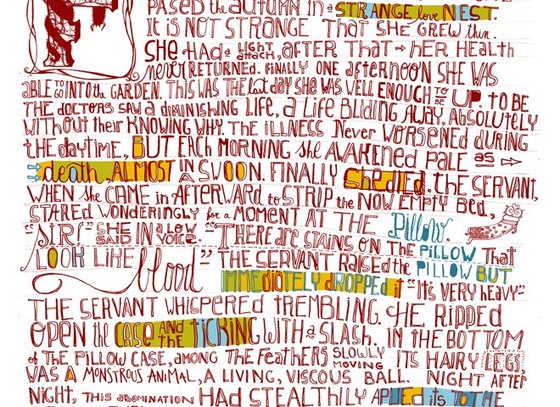 F
PASED the AUTUMN in a STRANGE love NEST.
It is NOT STRANGE THAT SHE GREW thin.
SHE HAd a LIGHT ATTACH, AFTER THAT HER HEALTH
never RETURNED. FINALLY ONE AFTERNOON SHE WAS
ABLE to INTO the GARDEN. THIS WAS THE last DAY SHE WAS WELL ENOUGH TO BE UP. TO BE
THE DOCTORS SAW A DIMINISHING LIFE, A LIFE BLIDING AWAY, ABSOLUTELY
WITHOUT their KNOWING WHY. THE ILLNESS Never WORSENED DURING
the DAYTIME, BUT EACH MORNING SHE AWAKENED PALE as
death, ALMOST IN A SWOON. FINALLY She died. THE SERVANT,
WHEN She CAME in AFTERWARD to STRIP the NOW EMPTY BED,
STARED WONDERINGLY for a MOMENT AT THE Pillow.
"SIR!" SHE SAID IN A LOW VOICE. "THERE are STAINS ON The PILLOW THAT
LOOK LIKE blood" THE SERVANT RAISEd the PILLOW BUT
IMMEdiOTELY dROPPEd it "It's VERY HEAVY"
THE SERVANT WHISPERED TREMBLING. HE RIPPED
OPEN the CASE AND THE TICKING WITH a SLASH. IN THE BOTTOM
of THE PILLOW CASE, AMONG THE FEATHERS SLOWLY MOVING ITS HAIRY LEGS
WAS A MONSTROUS ANIMAL, A LIVING, VISCOUS BALL. NIGHT AFTER
NIGHT, THIS ABOMINATION HAD STEALTHILY APLIED its TO THE